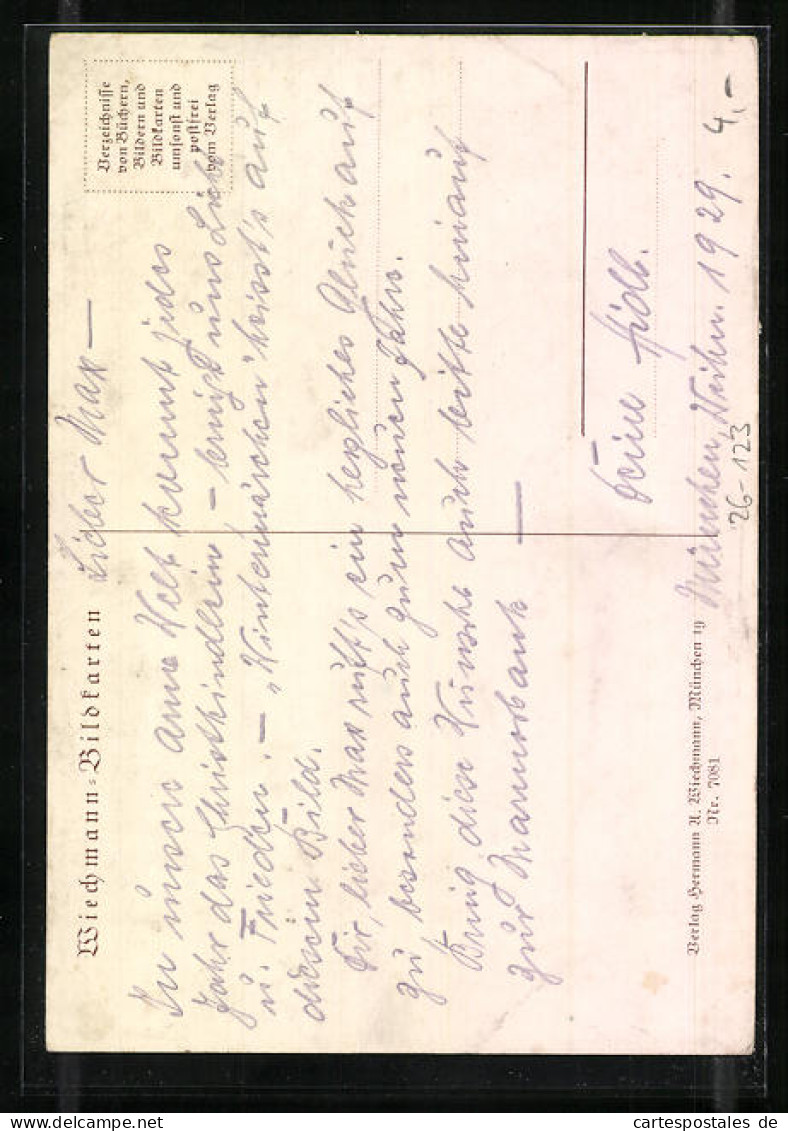 Wiechmann-Bildkarten
Verzeichnisse
von Büchern,
Bildern und
Bildkarten
umsonst und
postfrei
vom Verlag
Lieber Max —
In unsere arme Welt kommt jedes
Jahr das Christkindlein – bringt uns Liebe
u. Frieden. – „Wintermärchen" heisst's auf
diesem Bild.
Dir, lieber Max ruft's ein herzliches Glück auf
zu, besonders auch zum neuen Jahr.
Bring diese Wünsche auch bitte hinauf
zur
Deine
München, Weihn. 1929.
Verlag Hermann A. Wiechmann, München 19
Nr. 7081
4,-
26-123
cartespostales de